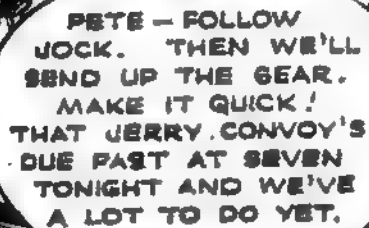 PETE — FOLLOW
JOCK. THEN WE'LL
SEND UP THE GEAR.
MAKE IT QUICK!
THAT JERRY CONVOY'S
DUE PAST AT SEVEN
TONIGHT AND WE'VE
A LOT TO DO YET.